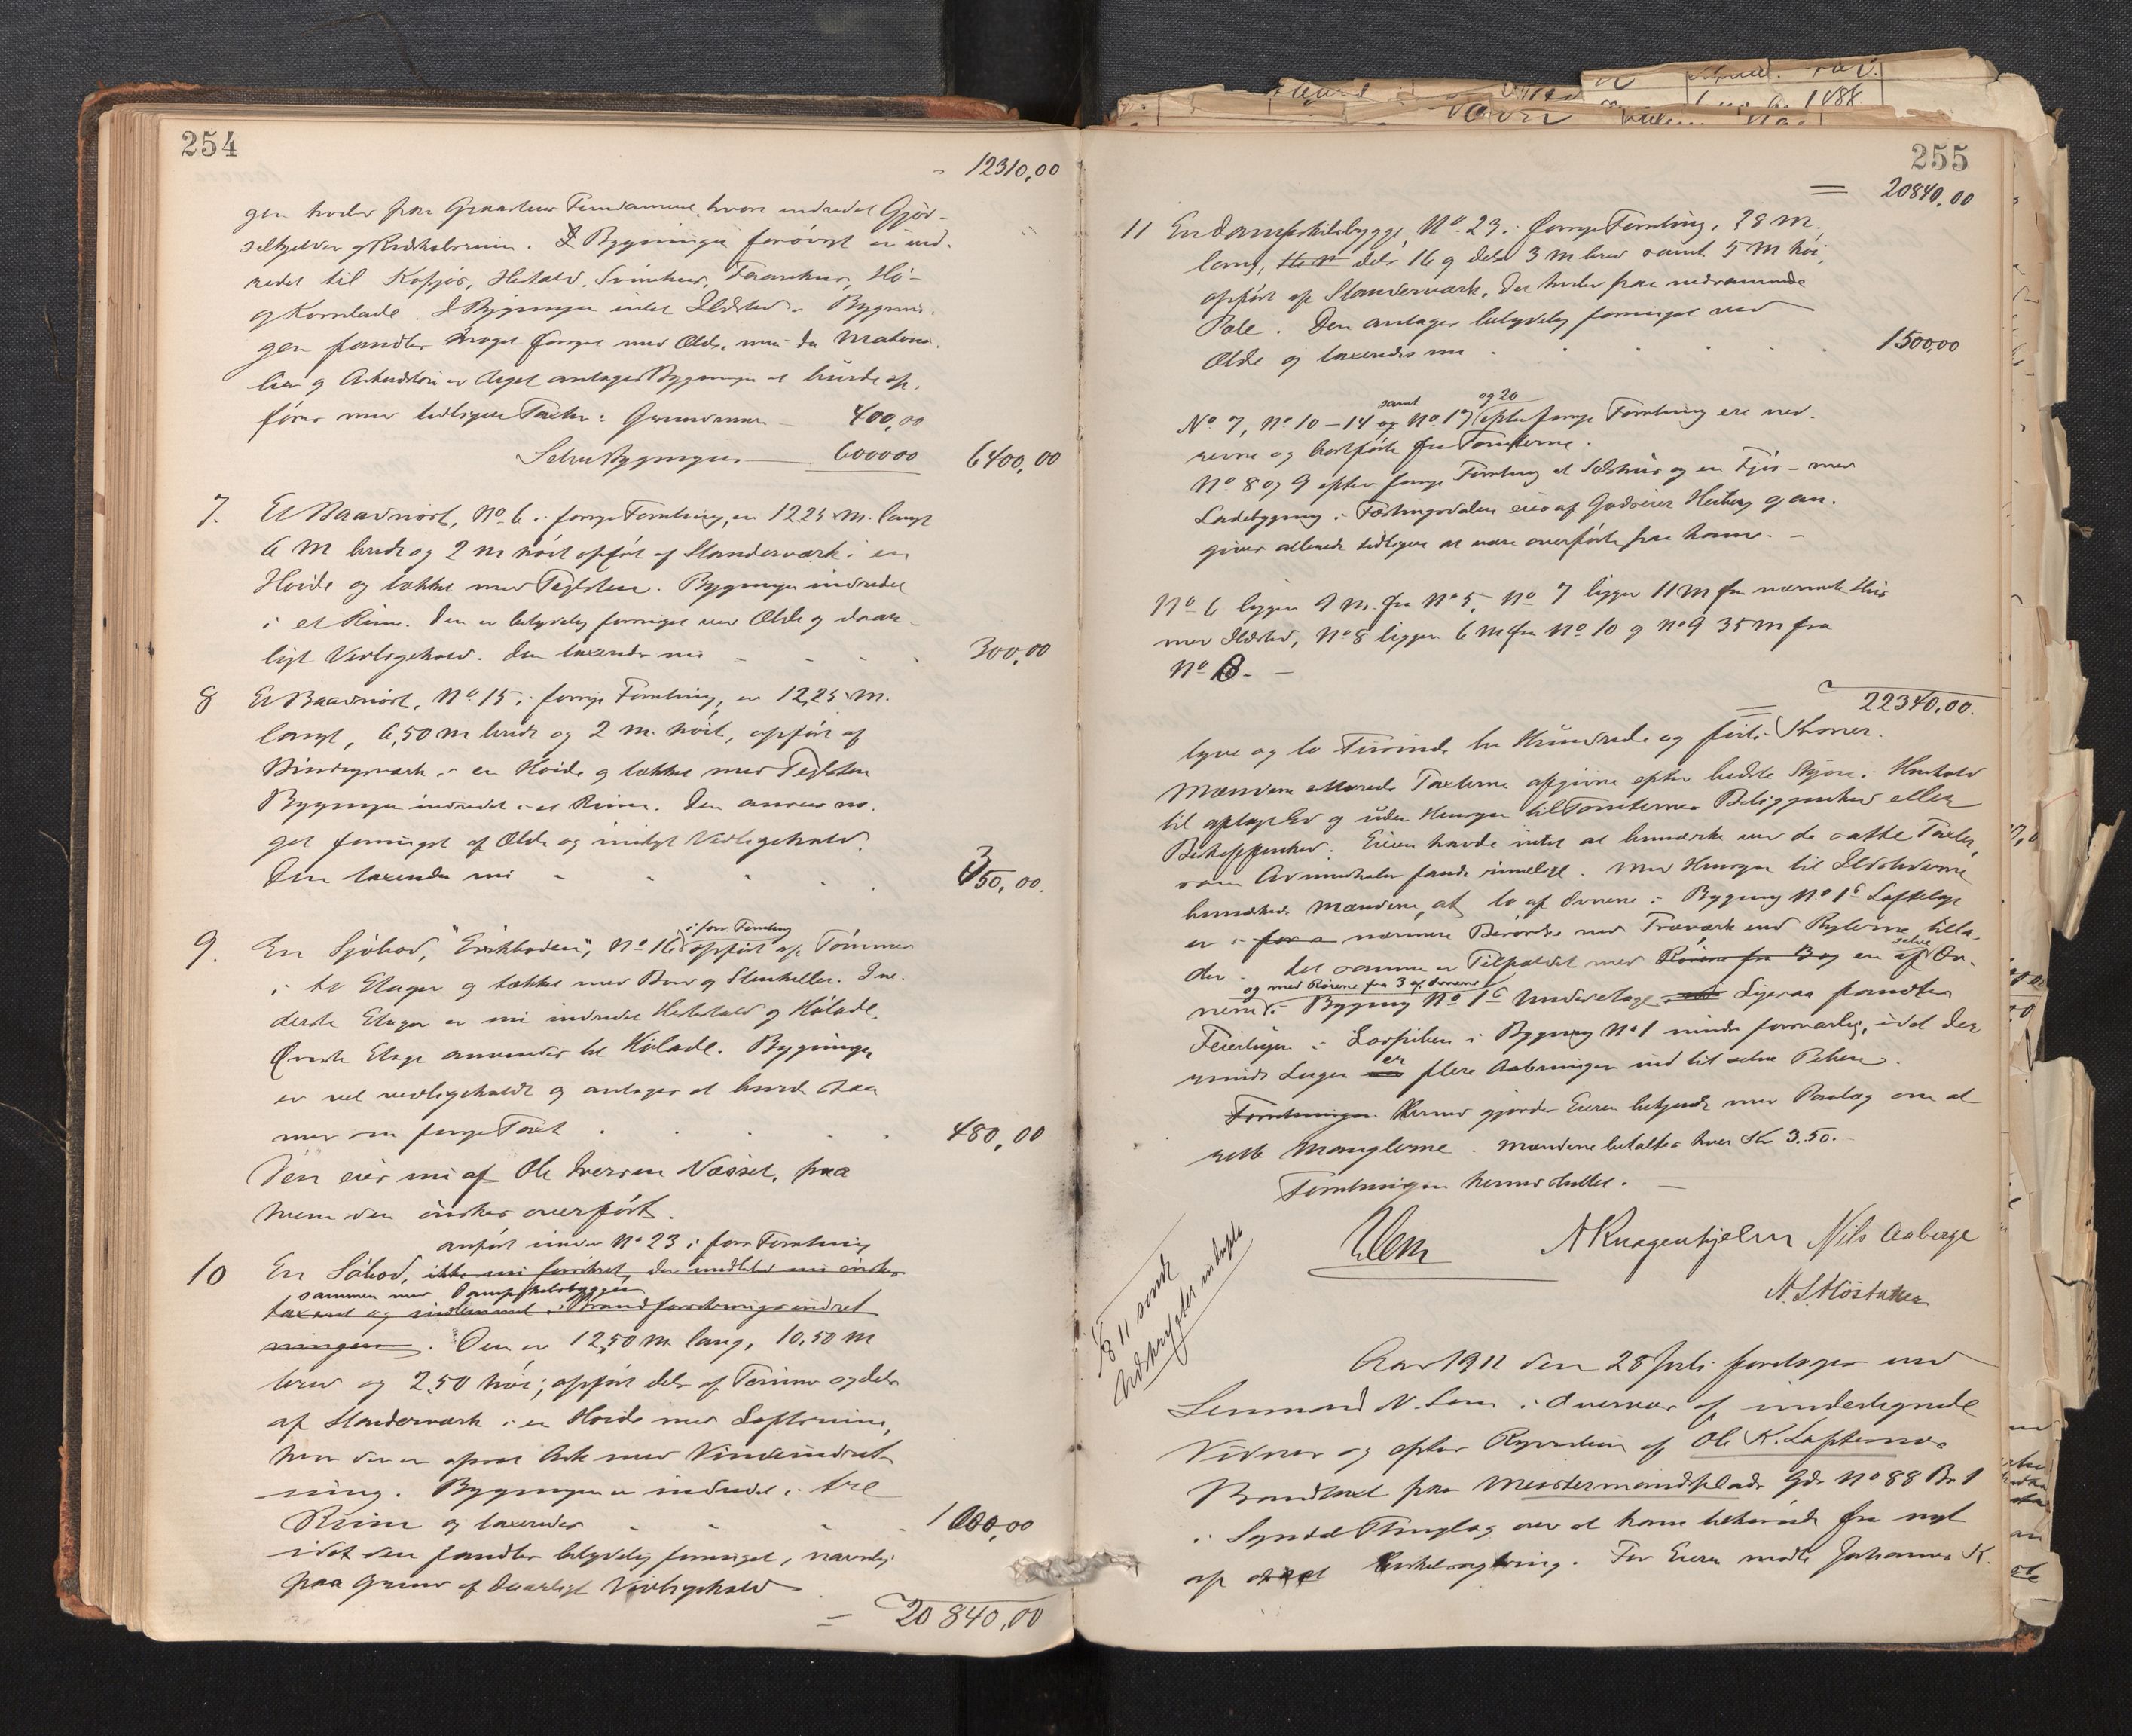 254
12310,00
gen hviler paa Graastens Fundament, hvori indredet Gjød-
selkjelder og Redskabsrum. I Bygningen forøvrigt er ind-
redet til Kofjøs, Hestald, Svinehus, Faarehus, Hø-
og Kornlade. I Bygningen intet Ildsted. Bygnin-
gen fandtes noget forringet med Ælde, men da Materia-
lier og Arbeidsløn er steget antages Bygningen at burde op-
føres med tidligere Taxter: Grundmur 400,00
Selve Bygningen 6000 00 6400,00
7. Et Baadnøst, No 6 i forrige Forretning, er 12,25 m. langt
6 m bredt og 2 m høit opført af Standerværk i en
Høide og tækket med Teglsten. Bygningen indredet
i et Rum. Den er betydelig forringet ved Ælde og daar-
ligt Vedligehold. Den taxeredes nu 300,00
8 Et Baadnøst, No 15 i forrige Forretning, er 12,25 m.
langt, 6,50 m bredt og 2 m. høit, opført af
Bindingsværk i en Høide og tækket med Teglsten
Bygningen indredet i et Rum. Den ansees no-
get forringet af Ælde og Vedligehold.
Den taxeredes nu 350,00.
9. En Sjøbod, No 16 opført af Tømmer
i forr. Forretning
i to Etager og tækket med Bord og Stenheller. I ne-
derste Etage er nu indredet Hestestald og Hølade.
Øverste Etage anvendes til Hølade. Bygningen
er vel vedligeholdt og antages at burde staa
med sin forrige Taxt 480,00
Den eies nu af Ole Iversen Næsset, paa
hvem den ønskes overført.
anført under No 23 i forr. Forretning
10 En Søbod, ikke nu forsikret, den indtil nu ønskes
sammen med Dampskibsbryggen
taxeret og indlemmet i Brandforsikringsindret
ningen. Den er 12,50 m. lang, 10,50 m
bred og 2,50 høi; opført dels af Tømmer og dels
af Standerværk i en Høide med Loftsrum,
hvor der er opsat Ark med Vindeindret-
ning. Bygningen er indredet i tre
Rum og taxeredes 1000,00
idet den fandtes betydelig forringet, navnlig
paa Grund af daarligt Vedligehold
20 840,00
255
20840,00
11 En Dampskibsbrygge No 23 i forrige Forretning, 28 m.
lang, dels 16 og dels 3 m bred samt 5 m høi,
opført af Standerværk. Den hviler paa nedrammede
Pæle. Den antages betydelig forringet ved
Ælde og taxeredes nu 1500,00
samt og 20
No 7, No 10 – 14 og No 17 efter forrige Forretning ere ned-
revne og bortførte fra Tomterne.
No 8 og 9 efter forrige Forretning et Sæshus og en Fjøs – med
Ladebygning i Fæstingsdalen eies af Godseier Heiberg og an-
gives allerede tidligere at være overførte paa ham. –
No 6 ligger 9 m. fra No 5, No 7 ligger 11 m fra nærmeste Hus
med Ildsted, No 8 ligger 6 m fra No 10 og No 9 35 m fra
No 8. –
22340,00.
tyve og to Tusinde tre Hundrede og firti Kroner.
Mændene Taxterne afgivne efter bedste Skjøn i Henhold
til aflagt Ed og uden Hensyn til Tomternes Beliggenhed eller
Beskaffenhed. Eieren havde intet at bemærke ved de satte Taxter,
som fandt rimeligt. Med Hensyn til Ildstederne
bemærkede Mændene, at to af Ovnene i Bygning No 1 Loftetage
er i for nærmere Berørelse med Træværk end Reglerne tilla-
der. Det samme er Tilfældet med Rørene fra 3 og en af selve Ov-
og med Rørene fra 3 af Ovnene
nerne i Bygning No 1 Underetage. Ligesaa fandtes
Feierlugen i Sospiben i Bygning No 1 mindre forsvarlig, idet der
er flere Aabninger ind til selve Piben.
Forretningen Herved gjordes Eieren bekjendt med Paalæg om at
rette Manglerne. Mændene betaltes hver Kr 3.50.
Forretningen hermed sluttet. –
NLem A Knagenhjelm Nils Aaberge
N. S. Høstaker
1/8 11 sendt
Udskrifter udbetalt
Aar 1911 den 28 Juli foretoges ved
Lensmand N. Lem i Overvær af undertegnede
Vidner og efter Reqvisition af Ole K. Loftesnes
Brandtaxt paa Meistermandsplads Gds No 88 Br 1
i Sogndal Thinglag over et ham tilhørende fra nyt
af For Eieren mødte Johannes K.